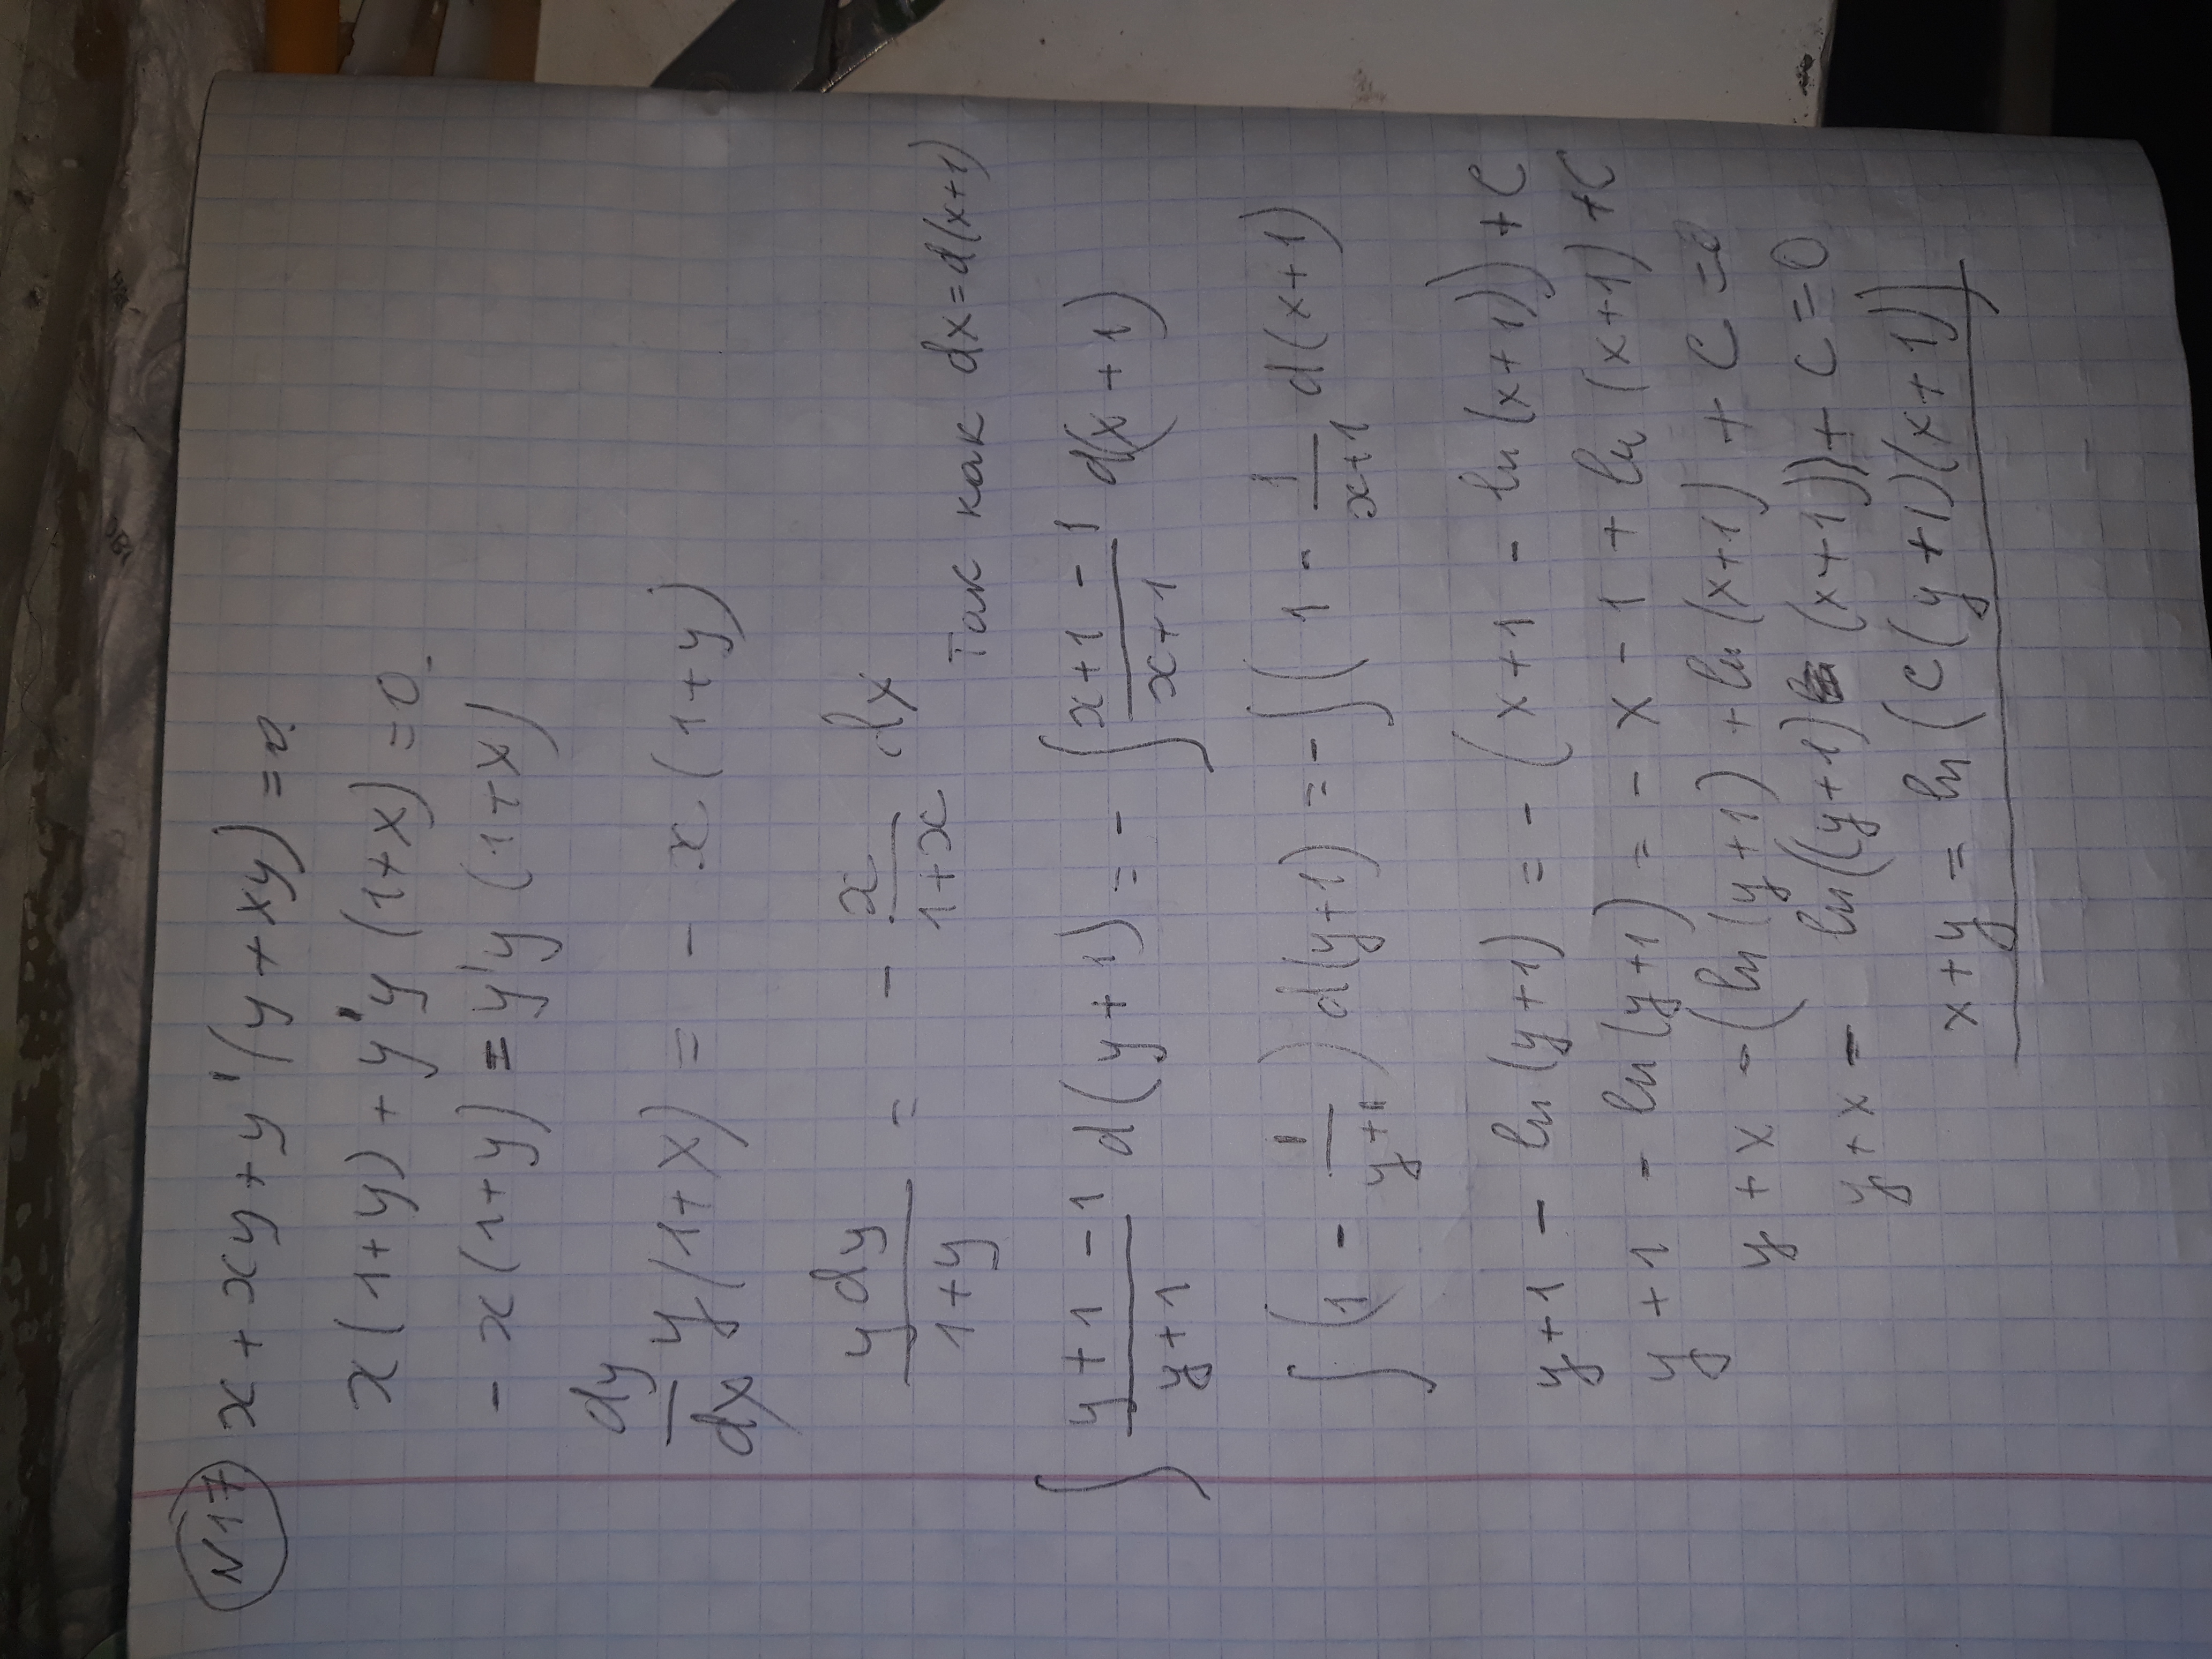 N17
x + xy + y'(y + xy) = 0
x(1+y) + y'y(1+x) = 0
- x(1+y) = y'y(1+x)
dy/dx y(1+x) = - x(1+y)
y dy/1+y = - x/1+x dx
Так как dx = d(x+1)
∫ y+1-1/y+1 d(y+1) = - ∫ x+1-1/x+1 d(x+1)
∫(1 - 1/y+1) d(y+1) = - ∫(1 - 1/x+1 d(x+1)
y+1 - ln(y+1) = - (x+1 - ln(x+1)) + C
y+1 - ln(y+1) = - x - 1 + ln(x+1) + C
y + x - (ln(y+1) + ln(x+1) + C = 0
y + x - ln((y+1)(x+1)) + C = 0
x + y = ln(C(y+1)(x+1))